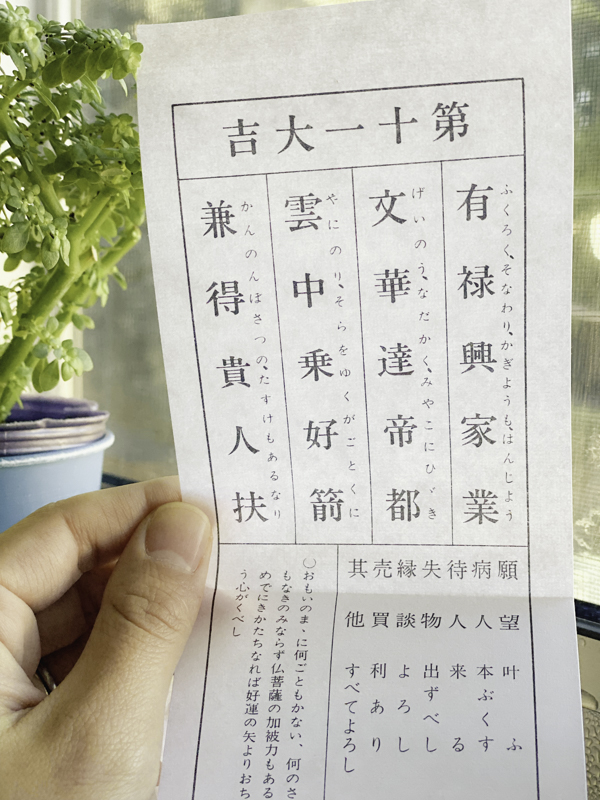 第十一大吉
有禄興家業
ふくろく、そなわり、かぎょうも、はんじょう
文華達帝都
げいのう、なだかく、みやこにひゞき
雲中乗好箭
やにのり、そらをゆくがごとくに
兼得貴人扶
かんのんぼさつの、たすけもあるなり
願望 叶ふ
病人 本ぶくす
待人 来る
失物 出ずべし
縁談 よろし
売買 利あり
其他 すべてよろし
○おもいのまゝに何ごともかない、何のさ
もなきのみならず仏菩薩の加被力もある
めでにきかたちなれば好運の矢よりおち
う心がくべし